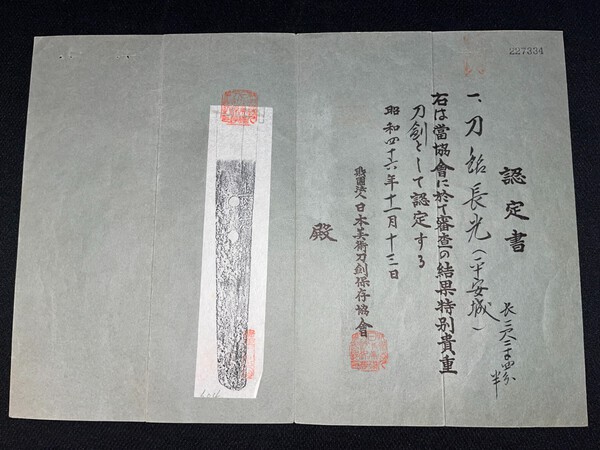 227334
認定書
一、刀 銘 長光(平安城)
長二尺二寸四分半
右は當協會に於て審査の結果特別貴重
刀劍として認定する
昭和四十六年十一月十三日
財團法人日本美術刀劍保存協會
殿